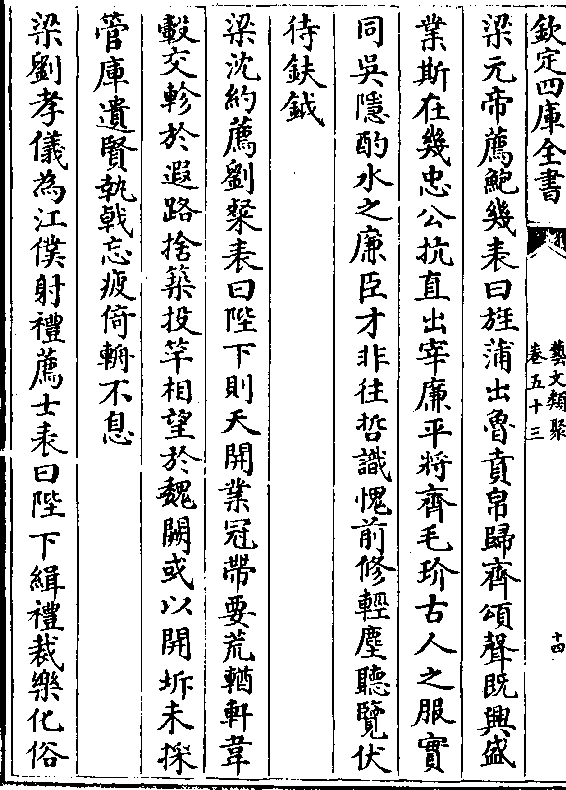 欽定四庫全書
藝文類聚
卷五十三
十四
梁元帝薦鮑幾表曰旌蒲出魯賁帛歸齊頌聲既興盛
業斯在幾忠公抗直出宰廉平將齊毛玠古人之服實
同吳隱酌水之廉臣才非往哲識愧前修輕塵聽覽伏
待鈇鉞
梁沈約薦劉粲表曰陛下則天開業冠帶要荒輶軒韋
轂交軫於遐路捨築投竿相望於魏闕或以開坼未採
管庫遺賢執戟忘疲倚輈不息
梁劉孝儀為江僕射禮薦士表曰陛下緝禮裁樂化俗